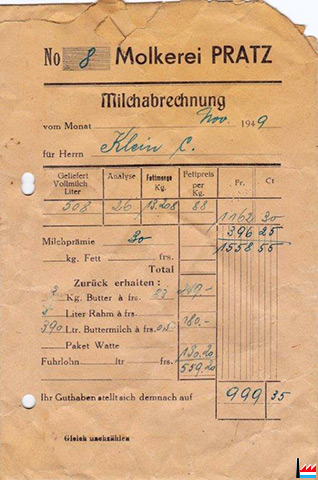 No 8 Molkerei PRATZ
Milchabrechnung
vom Monat Nov. 1949
für Herrn Klein C.
Geliefert Vollmilch Liter Analyse Fettmenge Kg. Fettpreis per Kg. Fr. Ct
508 26 13.208 88
1162 30
Milchprämie 30 396 25
kg. Fett frs. 1558 55
Total
Zurück erhalten:
Kg. Butter à frs.
Liter Rahm à frs.
390 Ltr. Buttermilch à frs. 180.-
Paket Watte
Fuhrlohn ltr frs. 130.20
559.20
Ihr Guthaben stellt sich demnach auf 999 35
Gleich nachzählen